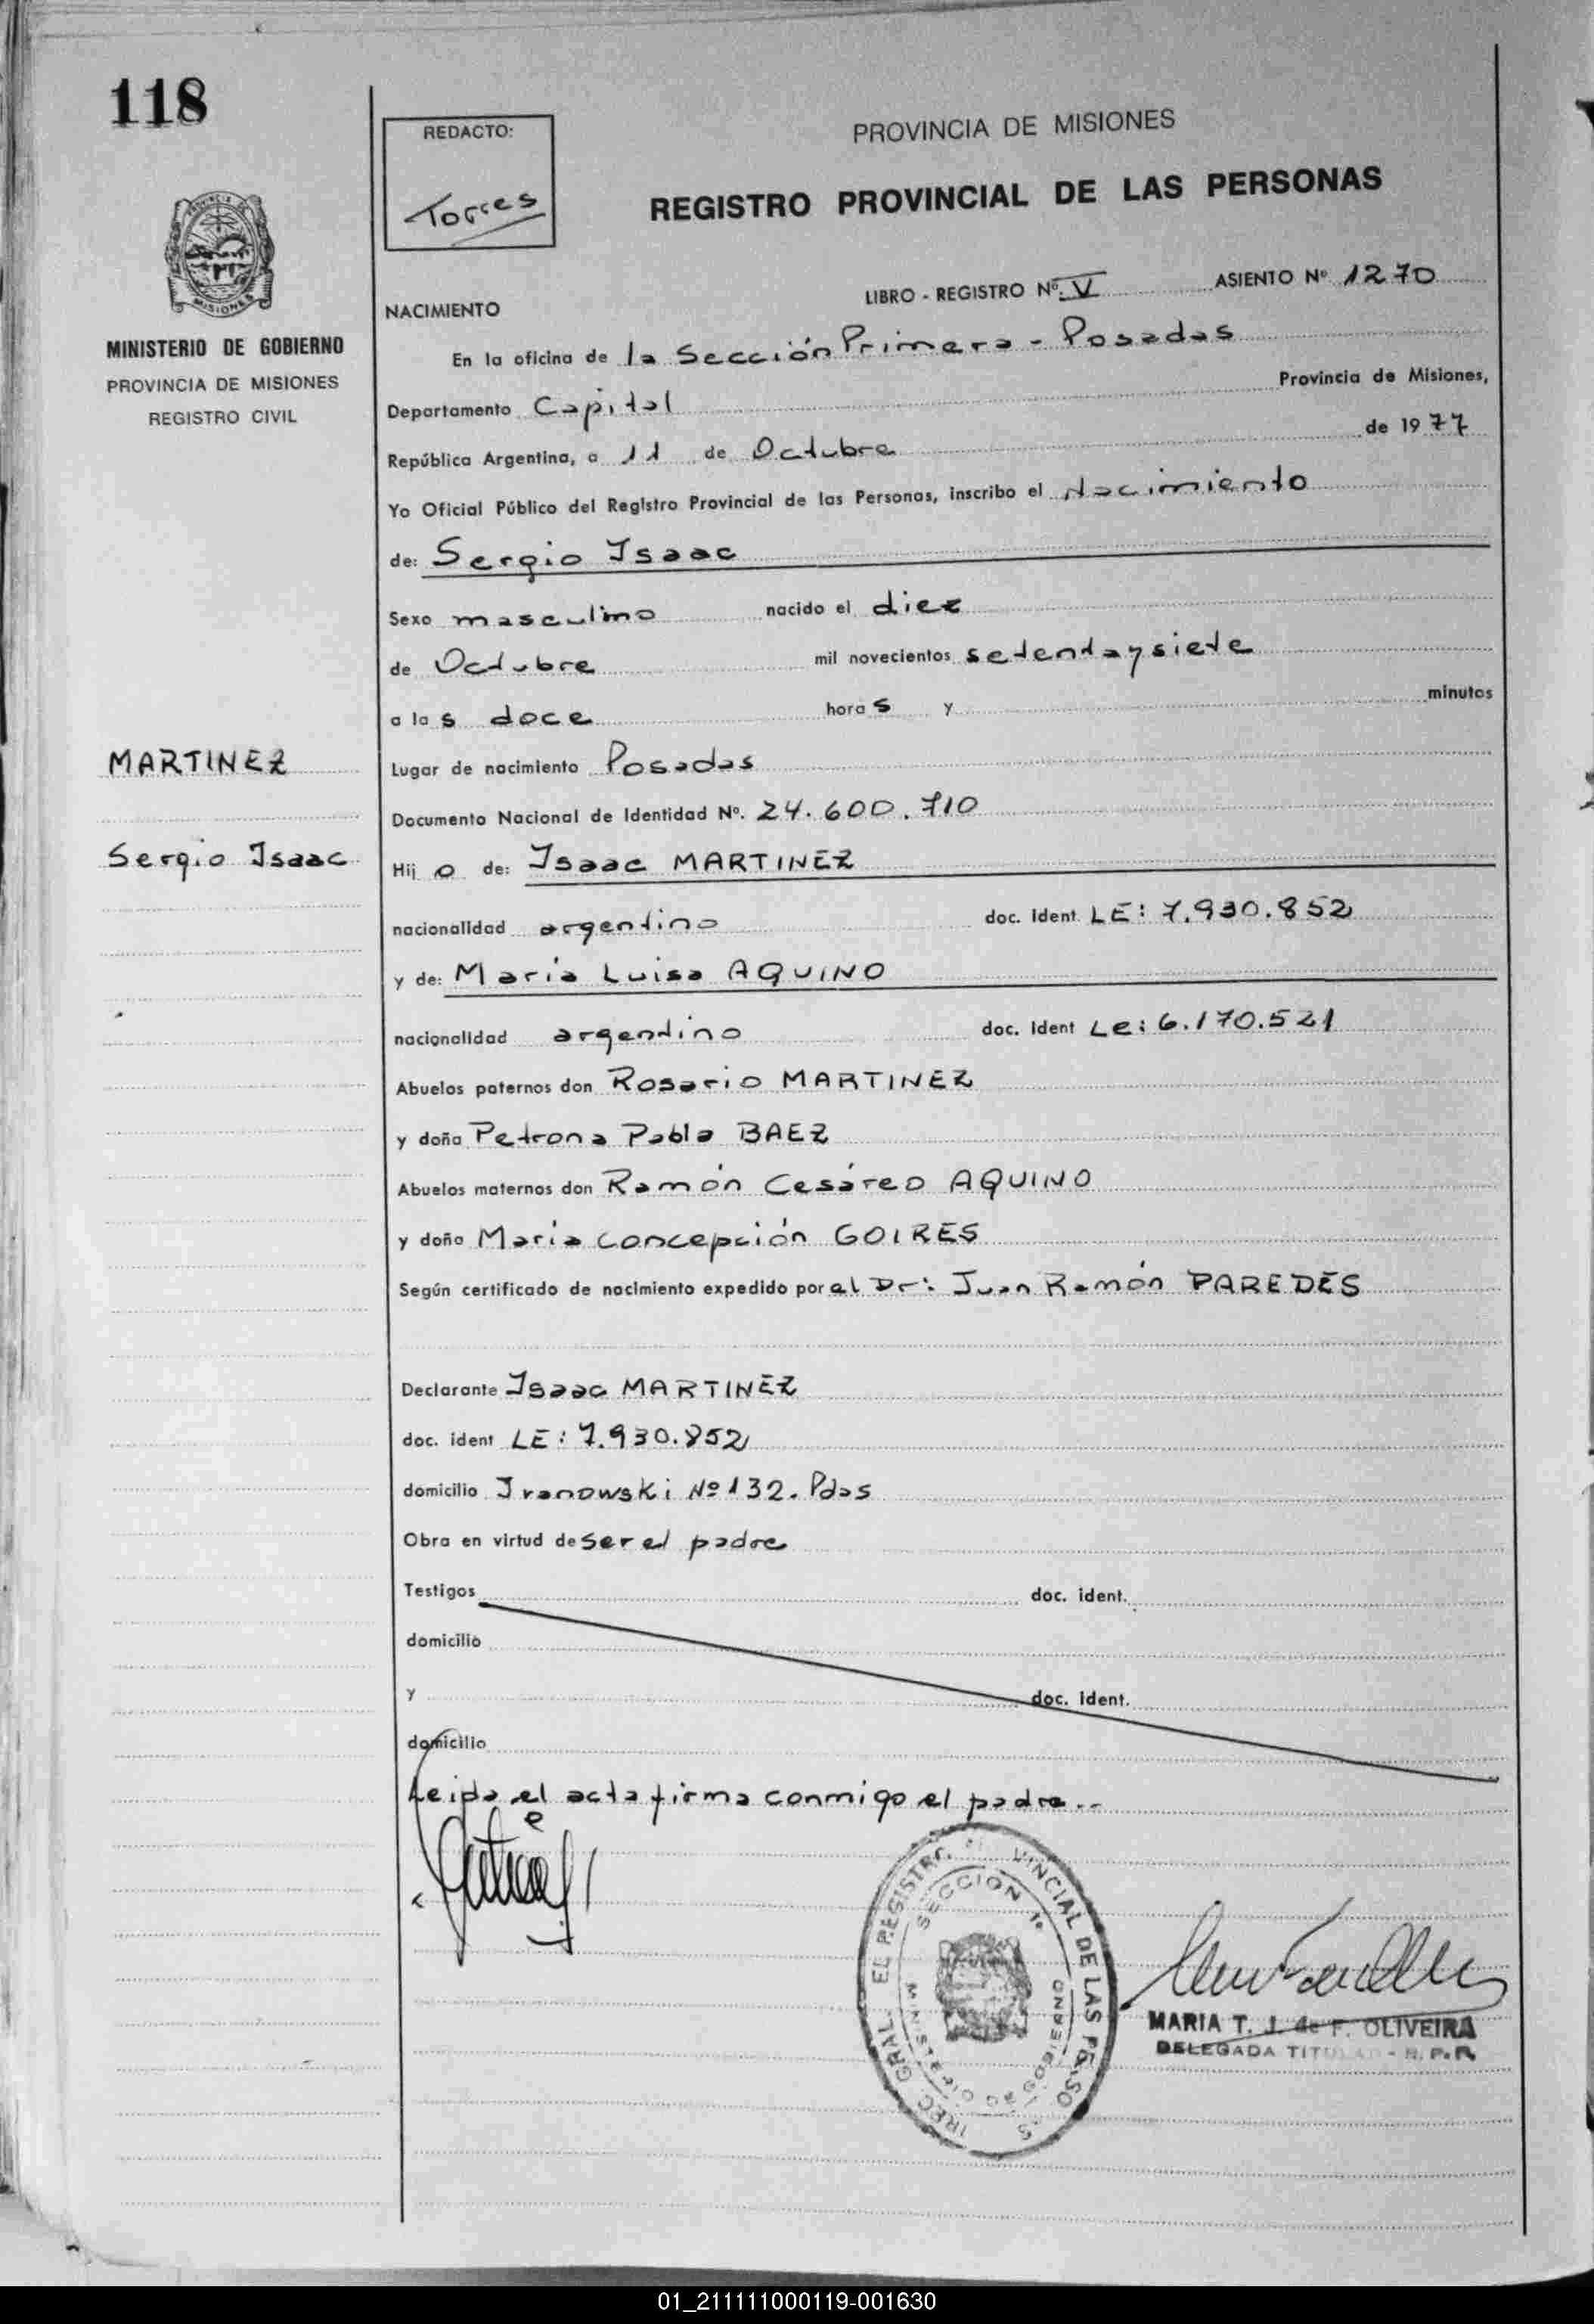 118
REDACTO:
Torres
PROVINCIA DE MISIONES
REGISTRO PROVINCIAL DE LAS PERSONAS
MISIONES
MINISTERIO DE GOBIERNO
PROVINCIA DE MISIONES
REGISTRO CIVIL
LIBRO - REGISTRO Nº. V ASIENTO Nº 1270
NACIMIENTO
En la oficina de la Sección Primera - Posadas
Departamento Capital Provincia de Misiones,
República Argentina, a 11 de Octubre de 1977
Yo Oficial Público del Registro Provincial de las Personas, inscribo el Nacimiento
de: Sergio Isaac
Sexo masculino nacido el diez
de Octubre mil novecientos setentaysiete
a las doce horas y minutos
MARTINEZ
Lugar de nacimiento Posadas
Documento Nacional de Identidad Nº. 24.600.710
Sergio Isaac
Hijo de: Isaac MARTINEZ
nacionalidad argentino doc. Ident LE: 7.930.852
y de: María Luisa AQUINO
nacionalidad argentino doc. Ident Le: 6.170.521
Abuelos paternos don Rosario MARTINEZ
y doña Petrona Pabla BAEZ
Abuelos maternos don Ramón Cesáreo AQUINO
y doña María Concepción GOIRES
Según certificado de nacimiento expedido por el Dr: Juan Ramón PAREDES
Declarante Isaac MARTINEZ
doc. ident LE: 7.930.852
domicilio Ivanowski Nº 132. Pdas
Obra en virtud de ser el padre
Testigos doc. ident.
domicilio
y doc. ident.
domicilio
Leida el acta firma conmigo el padre.-
SECCION 1ª
MARIA T. J. de F. OLIVEIRA
DELEGADA TITULAR - R. P. P.
01_211111000119-001630